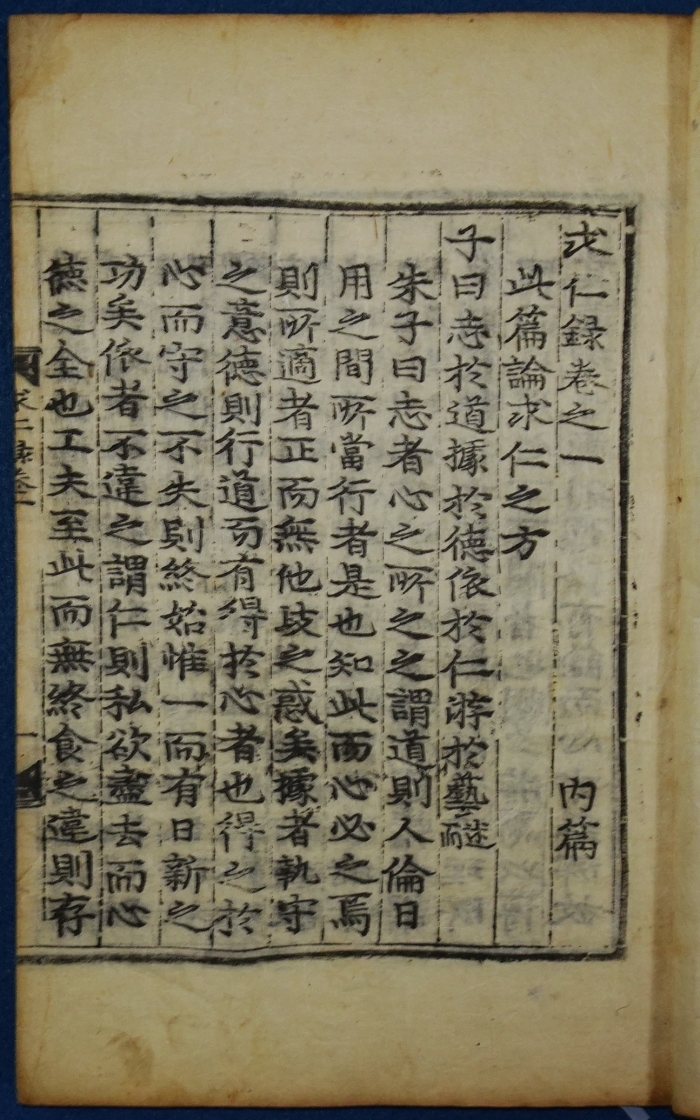 求仁録卷之一 內篇
此篇論求仁之方
子曰志於道據於德依於仁游於藝
朱子曰志者心之所之之謂道則人倫日
用之間所當行者是也知此而心必之焉
則所適者正而無他歧之惑矣據者執守
之意德則行道而有得於心者也得之於
心而守之不失則終始惟一而有日新之
功矣依者不違之謂仁則私欲盡去而心
德之全也工夫至此而無終食之違則存
求仁錄卷一
一